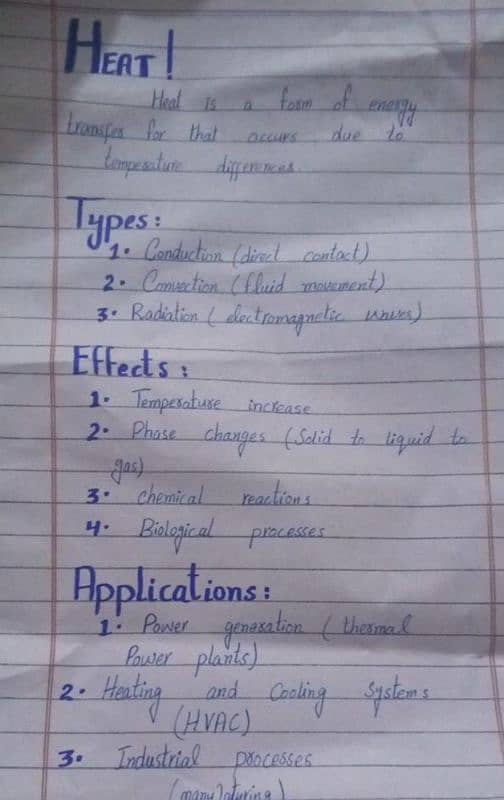 HEAT!
Heat is a form of energy
transfer for that occurs due to
temperature differences.
Types:
1. Conduction (direct contact)
2. Convection (fluid movement)
3. Radiation ( electromagnetic waves)
Effects:
1. Temperature increase
2. Phase changes (Solid to liquid to
gas)
3. chemical reactions
4. Biological processes
Applications:
1. Power generation ( thermal
Power plants)
2. Heating and Cooling Systems
(HVAC)
3. Industrial processes